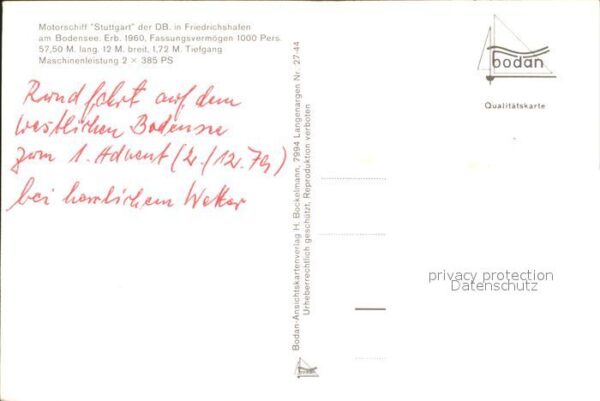 Motorschiff "Stuttgart" der DB. in Friedrichshafen
am Bodensee. Erb. 1960, Fassungsvermögen 1000 Pers.
57,50 M. lang. 12 M. breit, 1,72 M. Tiefgang
Maschinenleistung 2 × 385 PS
Rundfahrt auf dem
westlichen Bodensee
zum 1. Advent (2./12.79)
bei herrlichem Wetter
Bodan-Ansichtskartenverlag H. Bockelmann, 7994 Langenargen Nr. 27-44
Urheberrechtlich geschützt, Reproduktion verboten
bodan
Qualitätskarte
privacy protection
Datenschutz